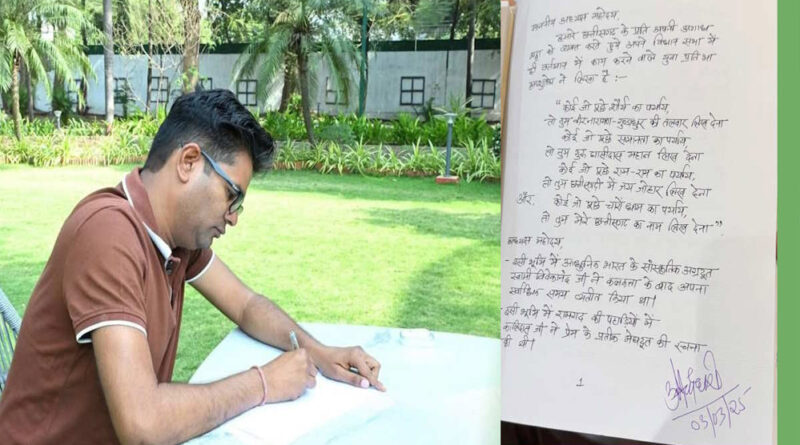 माननीय अध्यक्ष महोदय,
हमारे छत्तीसगढ़ के प्रति अपनी अगाध
श्रद्धा को व्यक्त करते हुये अपने विधान सभा में
ही वर्तमान में काम करने वाले युवा
ने लिखा है :-
"कोई जो पूछे शौर्य का पर्याय,
तो तुम वीरनारायण-गुण्डाधुर की तलवार लिख देना
कोई जो पूछे समानता का पर्याय,
तो तुम गुरु घासीदास महान लिख देना
कोई जो पूछे राम-राम का पर्याय,
तो तुम छत्तीसगढ़ी में जय जोहार लिख देना
और, कोई जो पूछे चारों धाम का पर्याय,
तो तुम मेरे छत्तीसगढ़ का नाम लिख देना"
अध्यक्ष महोदय,
- इसी भूमि में आधुनिक भारत के सांस्कृतिक अग्रदूत
स्वामी विवेकानंद जी ने कलकत्ता के बाद अपना
सर्वाधिक समय व्यतीत किया था।
- इसी भूमि में रामगढ़ की पहाड़ियों में
कालिदास जी ने प्रेम के प्रतीक मेघदूत की रचना
की थी।
1
03/03/25